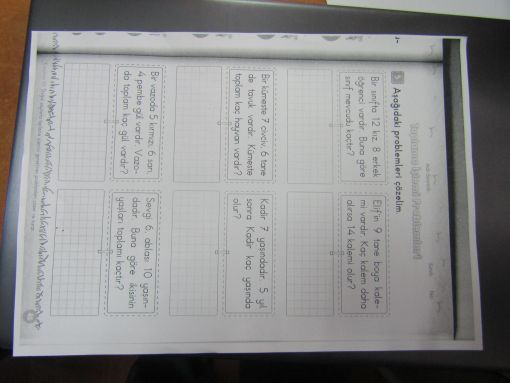 Toplama İşlemi Problemleri
Adı Soyadı:
Sınıfı:
No:
5
Aşağıdaki problemleri çözelim
Bir sınıfta 12 kız, 8 erkek
öğrenci vardır. Buna göre
sınıf mevcudu kaçtır?
Elif'in 9 tane boya kale-
mi vardır. Kaç kalem daha
alırsa 14 kalemi olur?
Bir kümeste 7 civciv, 6 tane
de tavuk vardır. Kümeste
toplam kaç hayvan vardır?
Kadir 7 yaşındadır. 5 yıl
sonra Kadir kaç yaşında
olur?
Bir vazoda 5 kırmızı, 6 sarı,
4 pembe gül vardır. Vazo-
da toplam kaç gül vardır?
Sevgi 6, ablası 10 yaşın-
dadır. Buna göre ikisinin
yaşları toplamı kaçtır?